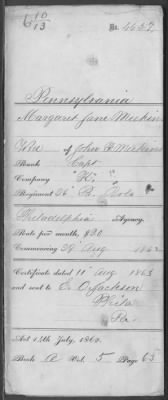 No. 4627
Pennsylvania
Margaret Jane Meekins
of John
Rank Capt.
Company "K,"
Regiment 26" P. Vols
Philadelphia Agency.
Rate per month, $20
Commencing 29 Aug 1862
Certificate dated 11" Aug 1863
and sent to E. C. Jackson
Phila
Pa.
Act 14th July, 1862.
Book A Vol. 5 Page 63